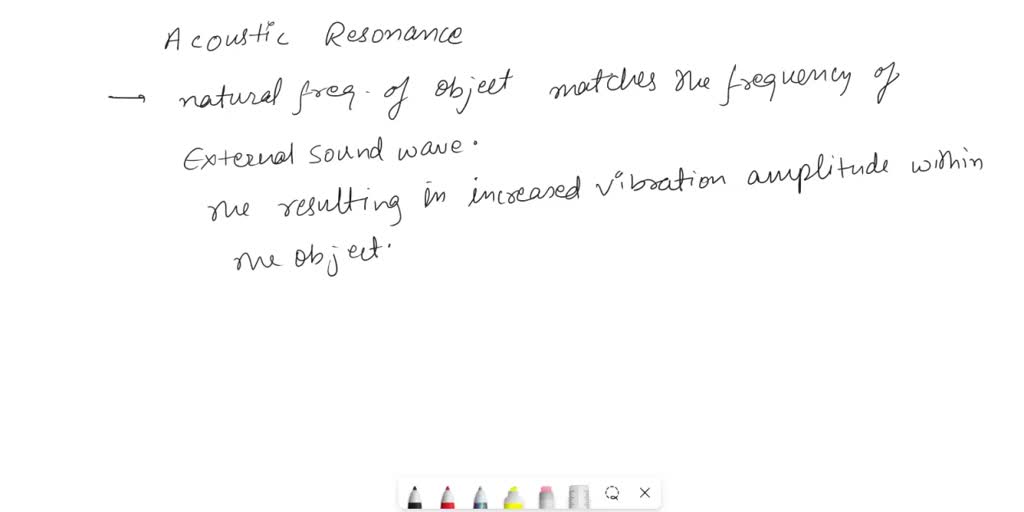 Acoustic Resonance
→ natural freq. of object matches the frequency of
External sound wave.
the resulting in increased vibration amplitude within
the object.